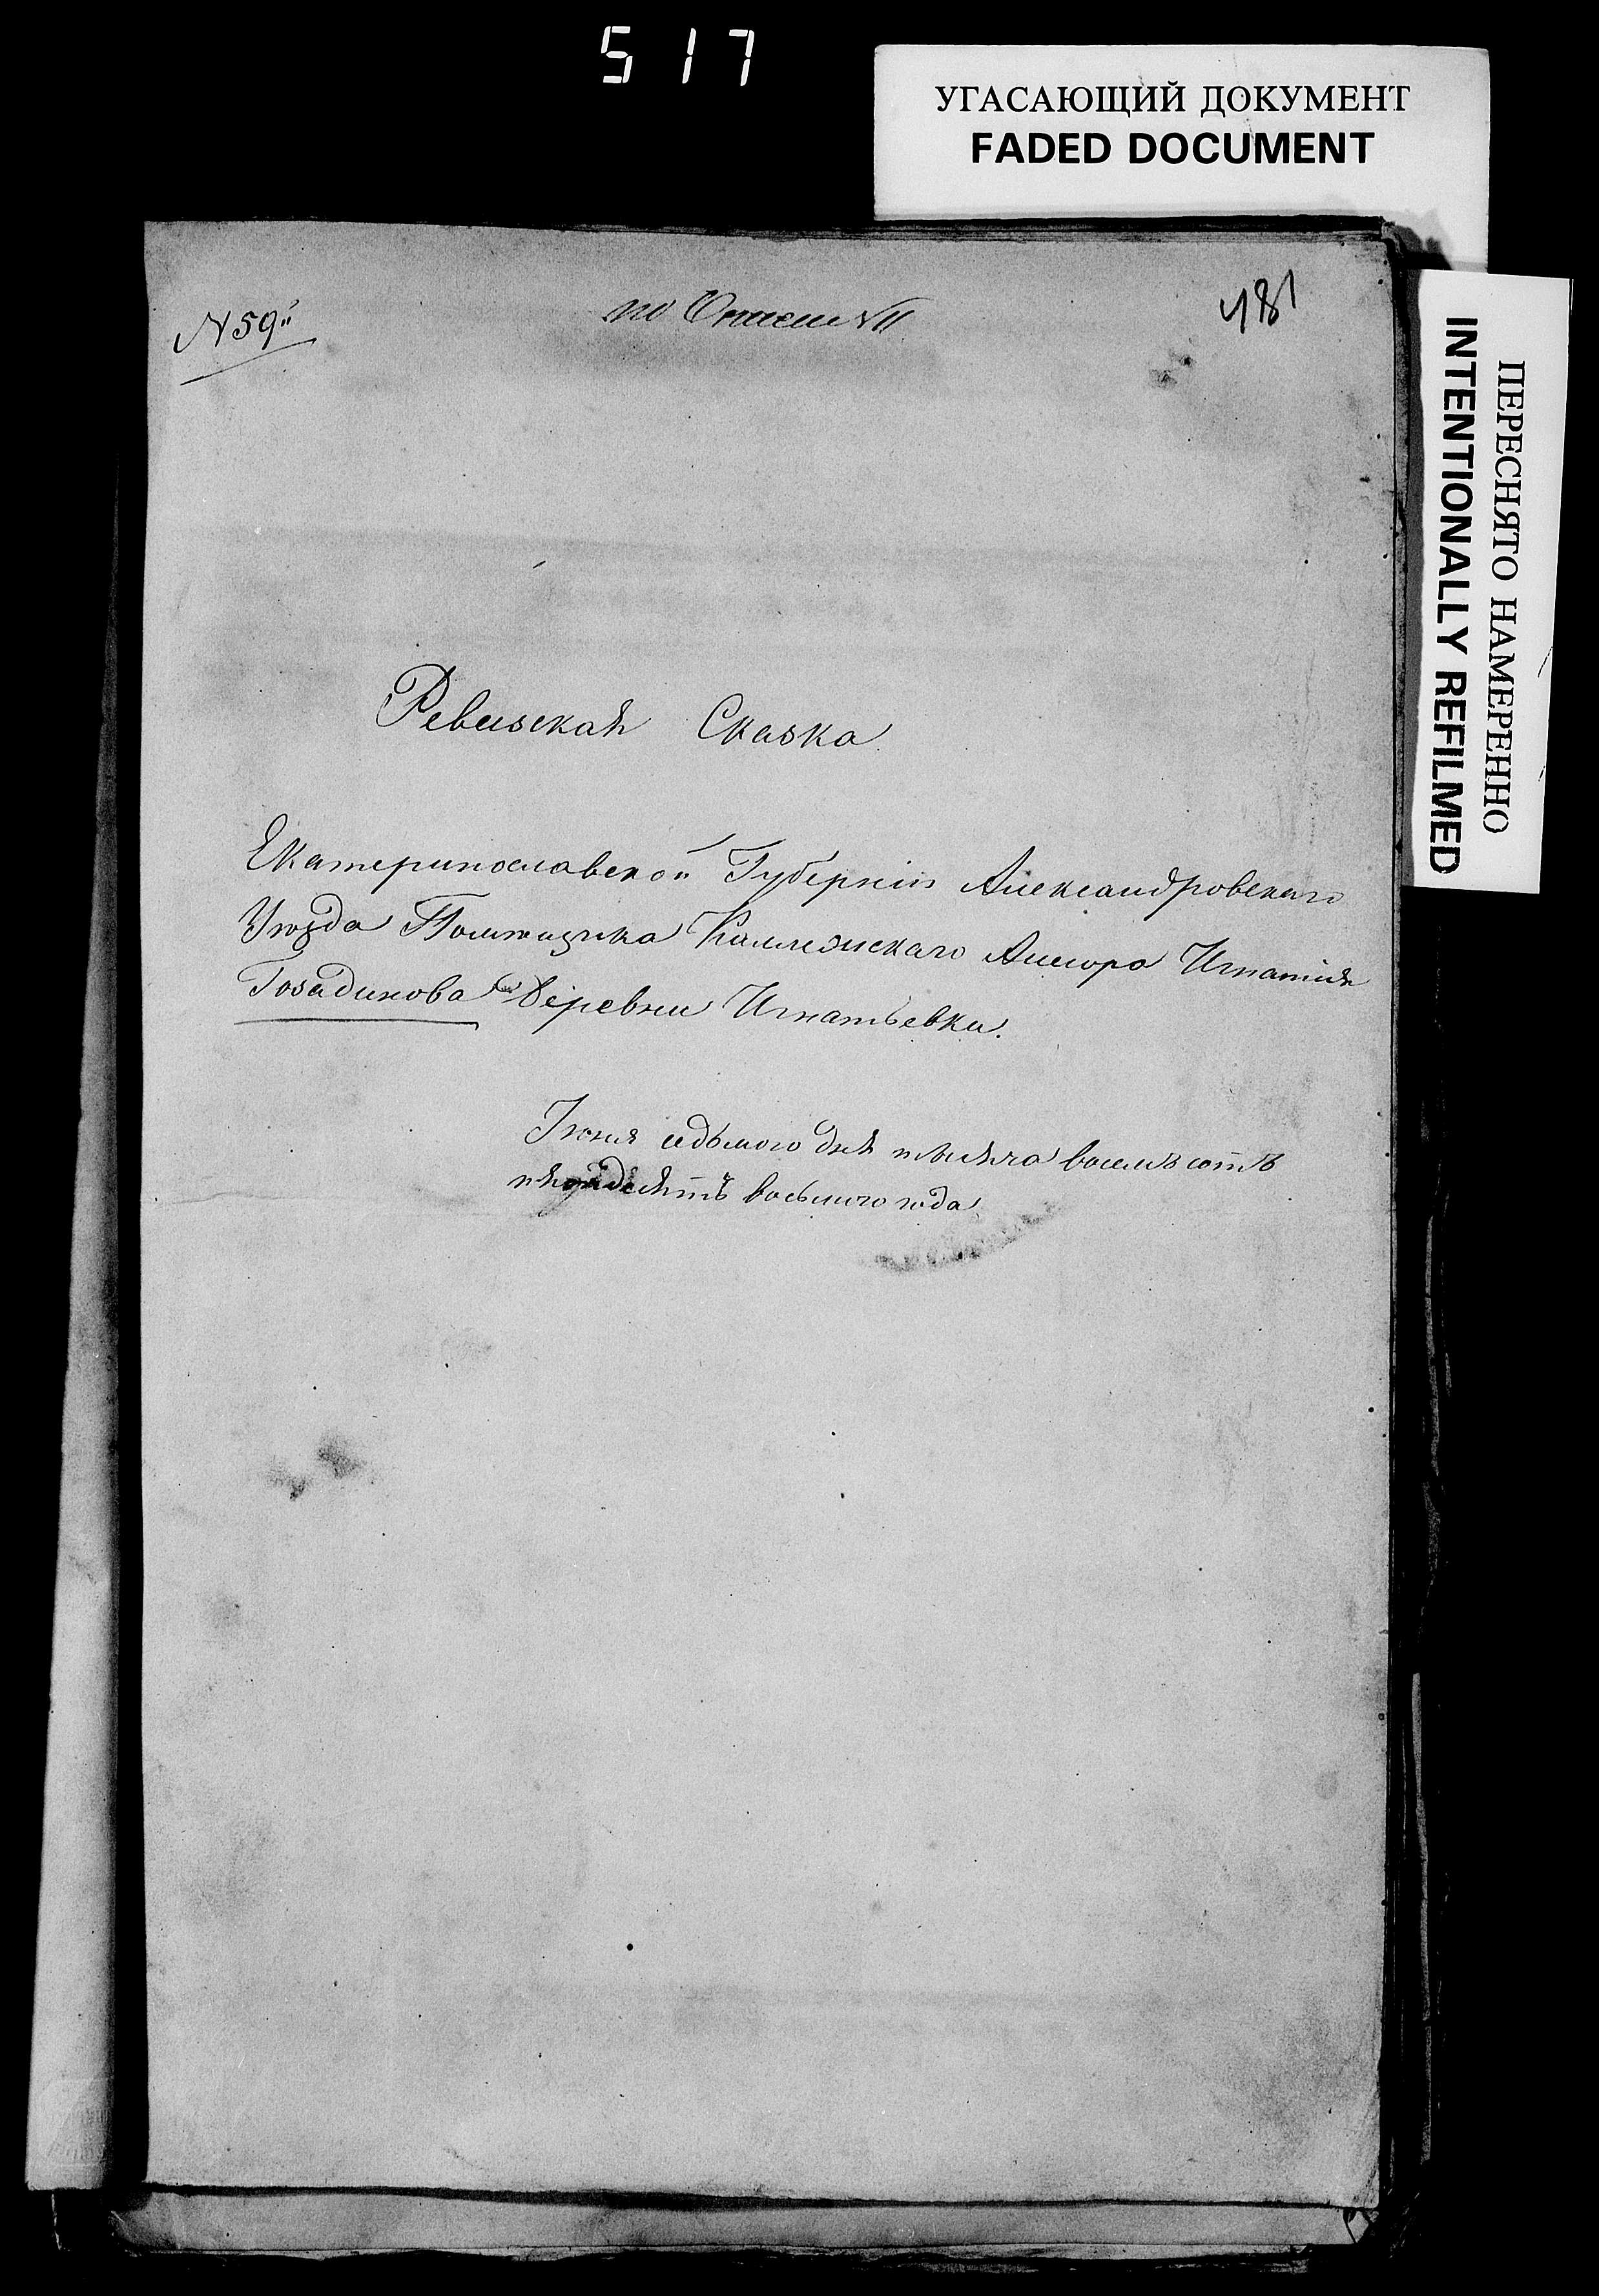 517
УГАСАЮЩИЙ ДОКУМЕНТ
FADED DOCUMENT
ПЕРЕСНЯТО НАМЕРЕННО
INTENTIONALLY REFILMED
N 59
по Описи VII
481
Ревизская Сказка
Екатеринославской Губерніи Александровскаго
Уѣзда Помѣщика Коллежскаго Ассесора Игнатія
Гозадинова Деревни Игнатьевки.
Іюня седьмого дня тысяча восемъсотъ
пятдесятъ восьмого года